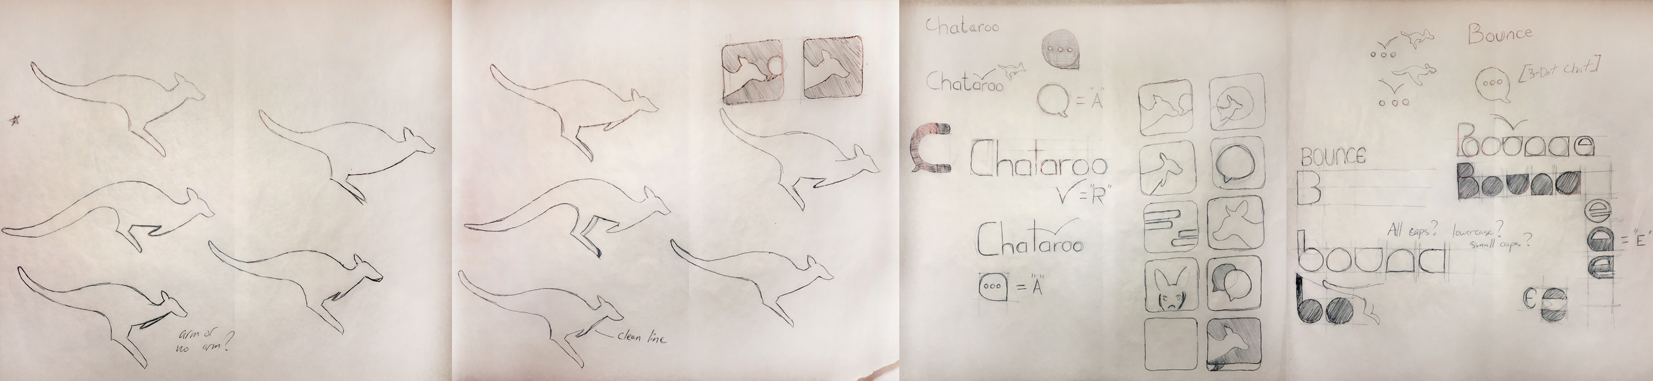 arm or
no arm?
clean line
Chataroo
Chataroo
= "A"
C
Chataroo
✓ = "R"
Chataroo
= "A"
Bounce
[3-Dot Chat]
Bounce
BOUNCE
B
Bouna
e
All caps? lowercase?
small caps?
bouna
e = "E"
e
bo
e